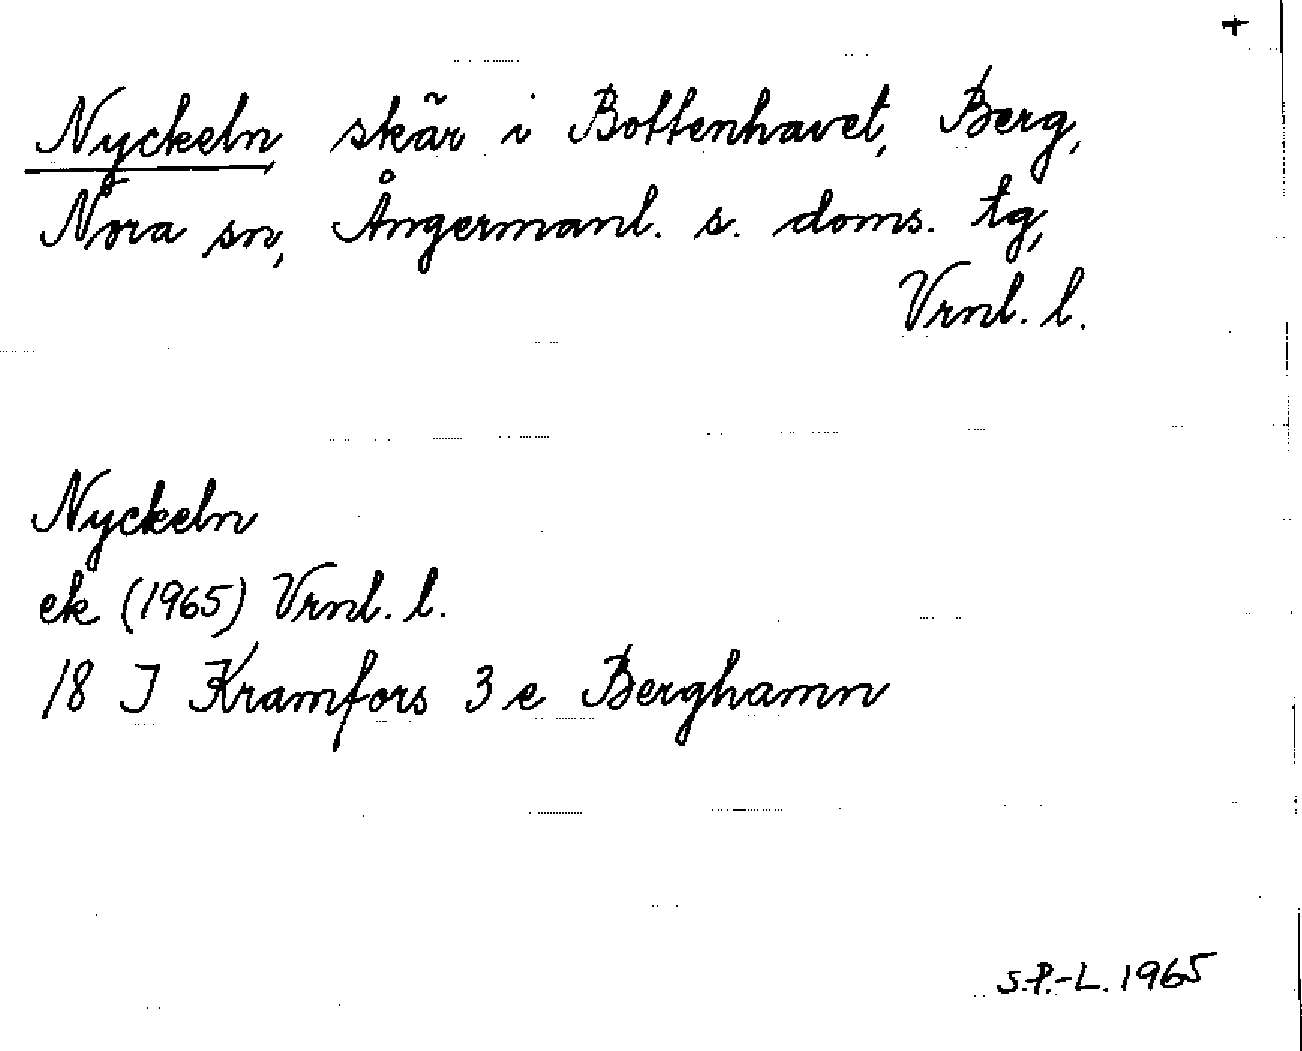 +
Nyckeln, skär i Bottenhavet, Berg,
Nora sn, Ångermanl. s. doms. tg,
Vrnl. l.
Nyckeln
ek (1965) Vrnl. l.
18 I Kramfors 3 e Berghamn
S.P.-L. 1965